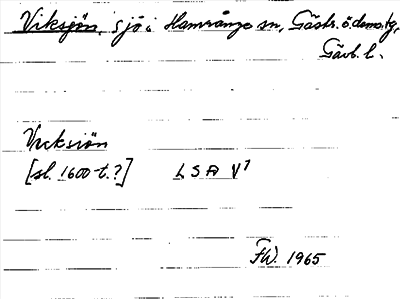 Viksjön, sjö i Hamrånge sn, Gästr. ö. domsg,
Gävl. l.
Vicksiön
[sl. 1600-t.?] LSA V⁷
FW. 1965